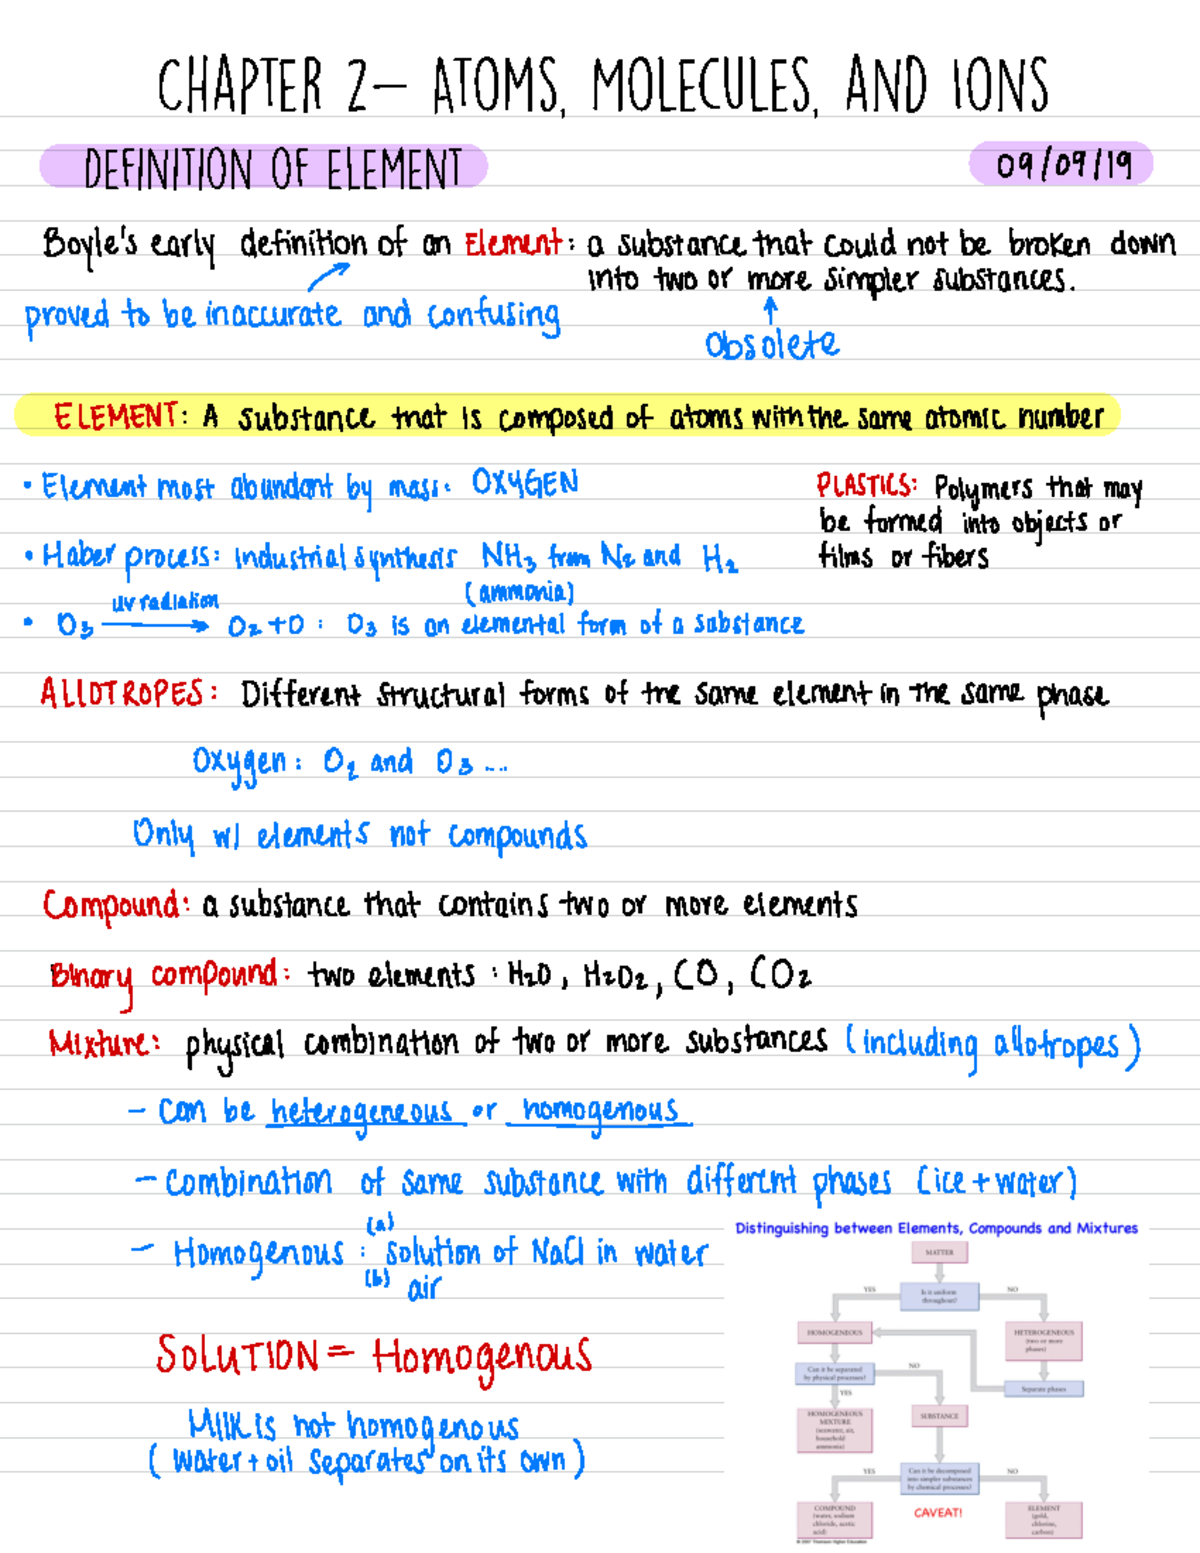 CHAPTER 2– ATOMS, MOLECULES, AND IONS
DEFINITION OF ELEMENT
09/09/19
Boyle's early definition of an Element: a substance that could not be broken down
into two or more simpler substances.
proved to be inaccurate and confusing
Obsolete
ELEMENT: A substance that is composed of atoms with the same atomic number
• Element most abundant by mass: OXYGEN
PLASTICS: Polymers that may
be formed into objects or
films or fibers
• Haber process: industrial synthesis NH3 from N2 and H2
(ammonia)
uv radiation
• O3 → O2 + O : O3 is an elemental form of a substance
ALLOTROPES: Different structural forms of the same element in the same phase
Oxygen: O2 and O3 ...
Only w/ elements not compounds
Compound: a substance that contains two or more elements
Binary compound: two elements : H2O, H2O2, CO, CO2
Mixture: physical combination of two or more substances (including allotropes)
– can be heterogeneous or homogenous
– combination of same substance with different phases (ice + water)
– Homogenous : (a) solution of NaCl in water
(b) air
SOLUTION = Homogenous
Milk is not homogenous
(water + oil separates on its own)
Distinguishing between Elements, Compounds and Mixtures
MATTER
YES
Is it uniform
throughout?
NO
HOMOGENEOUS
HETEROGENEOUS
(two or more
phases)
Can it be separated
by physical processes?
NO
Separate phases
YES
HOMOGENEOUS
MIXTURE
(seawater, air,
household
ammonia)
SUBSTANCE
YES
Can it be decomposed
into simpler substances
by chemical processes?
NO
COMPOUND
(water, sodium
chloride, acetic
acid)
CAVEAT!
ELEMENT
(gold,
chlorine,
carbon)
© 2007 Thomson Higher Education